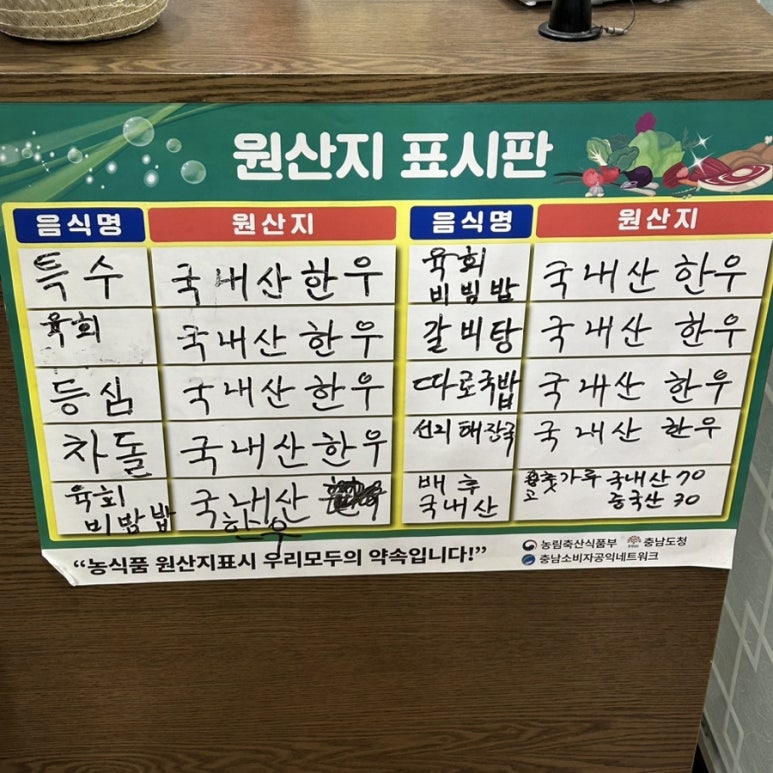 원산지 표시판
음식명 원산지 음식명 원산지
특수 국내산 한우
육회 국내산 한우
등심 국내산 한우
차돌 국내산 한우
육회
비빔밥 국내산
한우
육회
비빔밥 국내산 한우
갈비탕 국내산 한우
따로국밥 국내산 한우
선지해장국 국내산 한우
배추
국내산
고춧가루 국내산 70
중국산 30
“농식품 원산지표시 우리모두의 약속입니다!”
농림축산식품부 충남도청
충남소비자공익네트워크